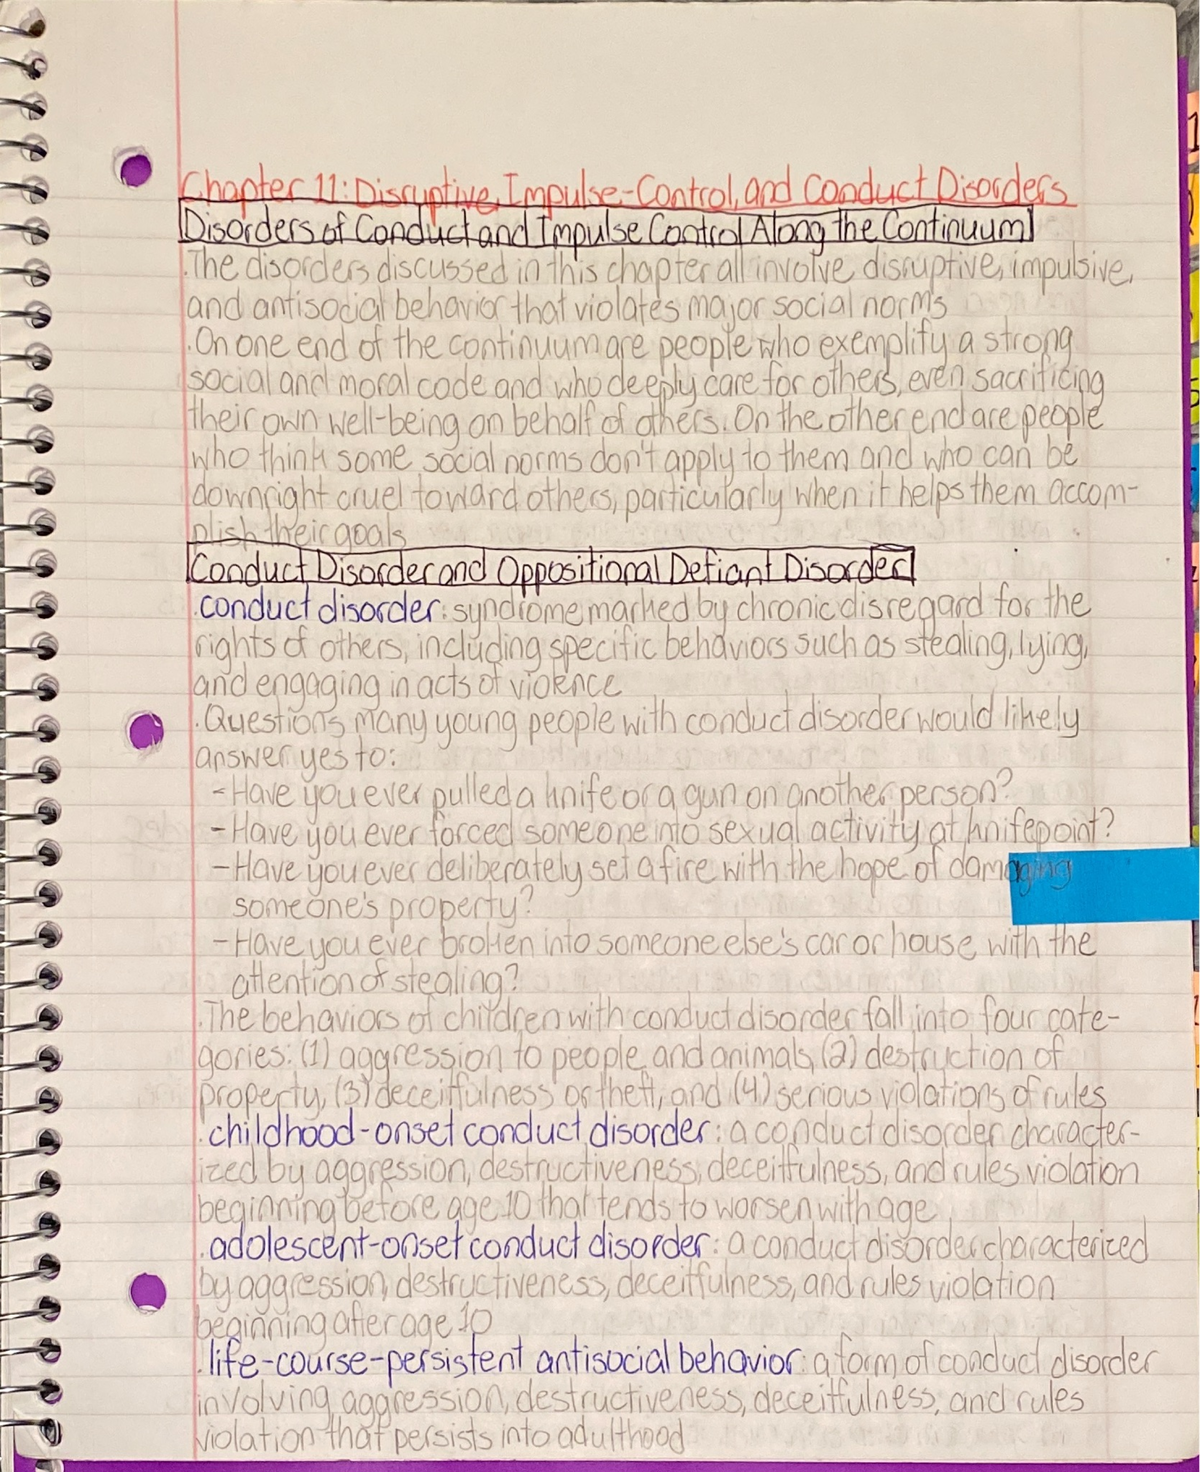 Chapter 11: Disruptive, Impulse-Control, and Conduct Disorders
Disorders of Conduct and Impulse Control Along the Continuum
·The disorders discussed in this chapter all involve disruptive, impulsive,
and antisocial behavior that violates major social norms
·On one end of the continuum are people who exemplify a strong
social and moral code and who deeply care for others, even sacrificing
their own well-being on behalf of others. On the other end are people
who think some social norms don't apply to them and who can be
downright cruel toward others, particularly when it helps them accom-
plish their goals
Conduct Disorder and Oppositional Defiant Disorder
·conduct disorder: syndrome marked by chronic disregard for the
rights of others, including specific behaviors such as stealing, lying,
and engaging in acts of violence
·Questions many young people with conduct disorder would likely
answer yes to:
-Have you ever pulled a knife or a gun on another person?
-Have you ever forced someone into sexual activity at knifepoint?
-Have you ever deliberately set a fire with the hope of damaging
someone's property?
-Have you ever broken into someone else's car or house with the
attention of stealing?
·The behaviors of children with conduct disorder fall into four cate-
gories: (1) aggression to people and animals, (2) destruction of
property, (3) deceitfulness or theft, and (4) serious violations of rules
·childhood-onset conduct disorder: a conduct disorder character-
ized by aggression, destructiveness, deceitfulness, and rules violation
beginning before age 10 that tends to worsen with age
·adolescent-onset conduct disorder: a conduct disorder characterized
by aggression, destructiveness, deceitfulness, and rules violation
beginning after age 10
·life-course-persistent antisocial behavior: a form of conduct disorder
involving aggression, destructiveness, deceitfulness, and rules
violation that persists into adulthood